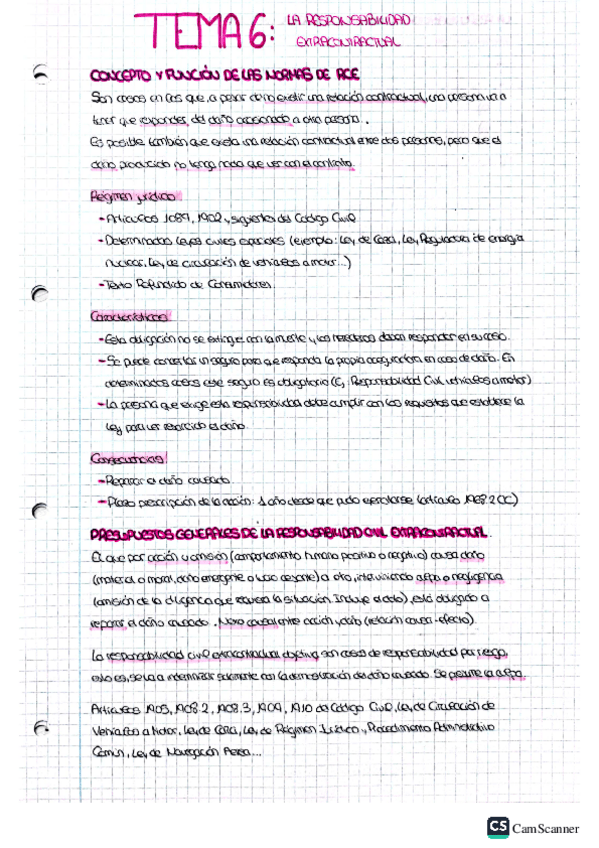 TEMA 6: LA RESPONSABILIDAD
EXTRACONTRACTUAL
CONCEPTO Y FUNCIÓN DE LAS NORMAS DE RCE
Son casos en los que, a pesar de no existir una relación contractual, una persona va a
tener que responder del daño ocasionado a otra persona.
Es posible también que exista una relación contractual entre dos personas, pero que el
daño producido no tenga nada que ver con el contrato.
Régimen jurídico
- Artículos 1089, 1902 y siguientes del Código Civil
- Determinadas leyes civiles especiales (ejemplo: Ley de Caza, Ley Reguladora de energía
nuclear, Ley de circulación de vehículos a motor...)
- Texto Refundido de Consumidores.
Características
- Esta obligación no se extingue con la muerte y los herederos deben responder en su caso.
- Se puede concertar un seguro para que responda la propia aseguradora en caso de daño. En
determinados casos ese seguro es obligatorio (Responsabilidad Civil vehículos a motor)
- La persona que exige esta responsabilidad debe cumplir con los requisitos que establece la
ley para ver resarcido el daño.
Consecuencias
- Reparar el daño causado.
- Plazo prescripción de la acción: 1 año desde que pudo ejercitarse (artículo 1968.2 CC)
PRESUPUESTOS GENERALES DE LA RESPONSABILIDAD CIVIL EXTRACONTRACTUAL.
El que por acción u omisión (comportamiento humano positivo o negativo) causa daño
(material o moral, daño emergente o lucro cesante) a otro, interviniendo culpa o negligencia
(omisión de la diligencia que requiera la situación. Incluye el dolo), está obligado a
reparar el daño causado. Nexo causal entre acción y daño (relación causa-efecto).
La responsabilidad civil extracontractual objetiva son casos de responsabilidad por riesgo,
esto es, se va a indemnizar solamente con la demostración de daño causado. Se presume la culpa.
Artículos 1905, 1908.2, 1908.3, 1909, 1910 del Código Civil, Ley de Circulación de
Vehículos a Motor, Ley de Caza, Ley de Régimen Jurídico y Procedimiento Administrativo
Común, Ley de Navegación Aérea...
CS CamScanner